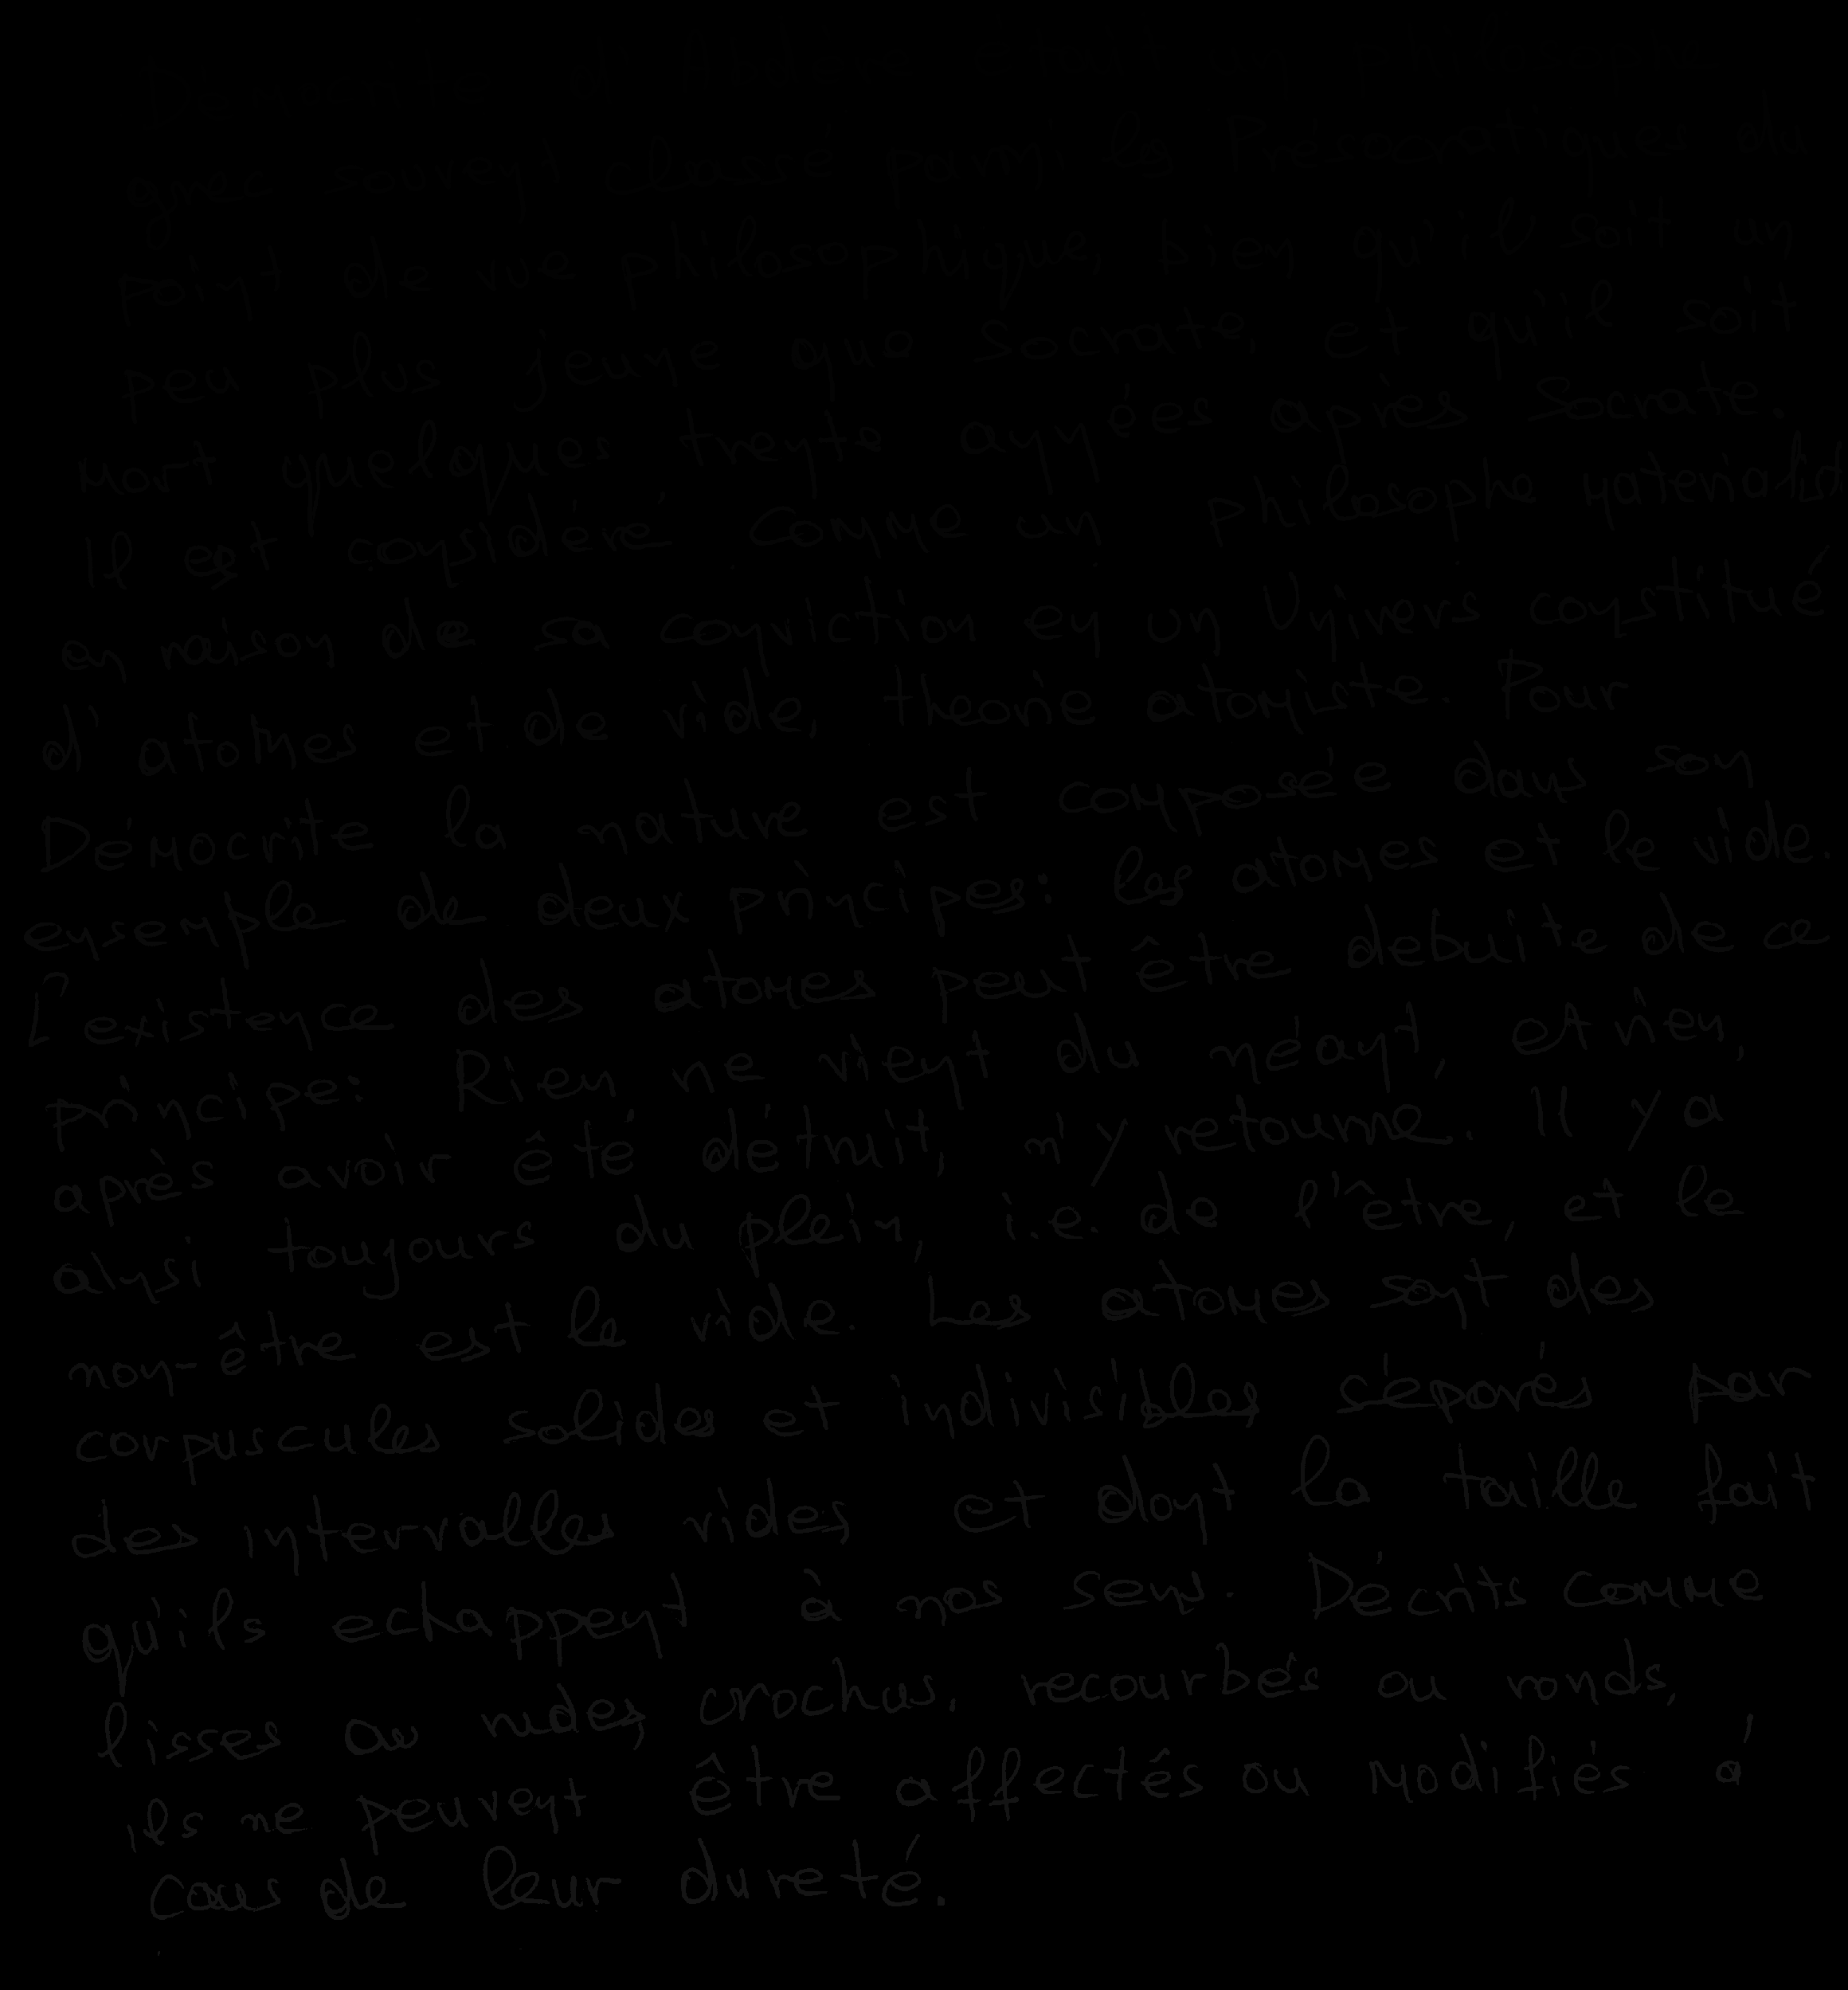 Démocrite d'Abdère était un philosophe
grec souvent classé parmi les Présocratiques du
point de vue philosophique, bien qu'il soit un
peu plus jeune que Socrate, et qu'il soit
mort quelques trente années après Socrate.
Il est considéré comme un philosophe materialist
en raison de sa conviction en un Univers constitué
d'atomes et de vide, theorie atomiste. Pour
Démocrite la nature est composée dans son
ensemple de deux principes: les atomes et le vide.
L'existence des atomes peut être debuite de ce
principe: Rien ne vient du néant, et rien,
après avoir êté détruit, n'y retourne. Il y a
ainsi toujours du plein, i.e. de l'être, et le
non-être est le vide. Les atomes sont des
corpuscules solides et indivisibles, séparés par
des intervalles vides, et dont la taille fait
qu'ils echappent à nos sens. Décrits comme
lisses ou rudes, crochus, recourbés ou ronds,
ils ne peuvent être affectés ou modifiés à
caus de leur dureté.